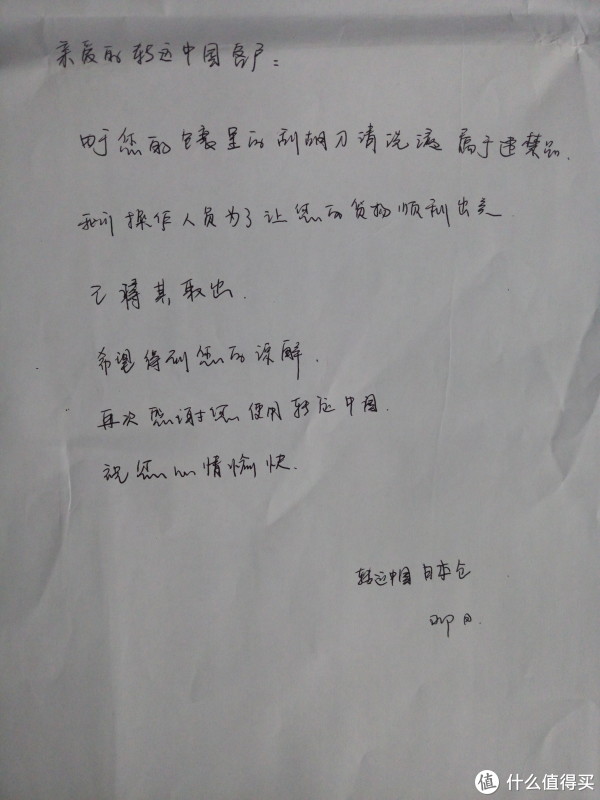 亲爱的转运中国客户：
由于您的包裹里的刮胡刀清洗液属于违禁品.
我们操作人员为了让您的货物顺利出关
已将其取出.
希望得到您的谅解.
再次感谢您使用转运中国.
祝您心情愉快.
转运中国 日本仓
值 什么值得买